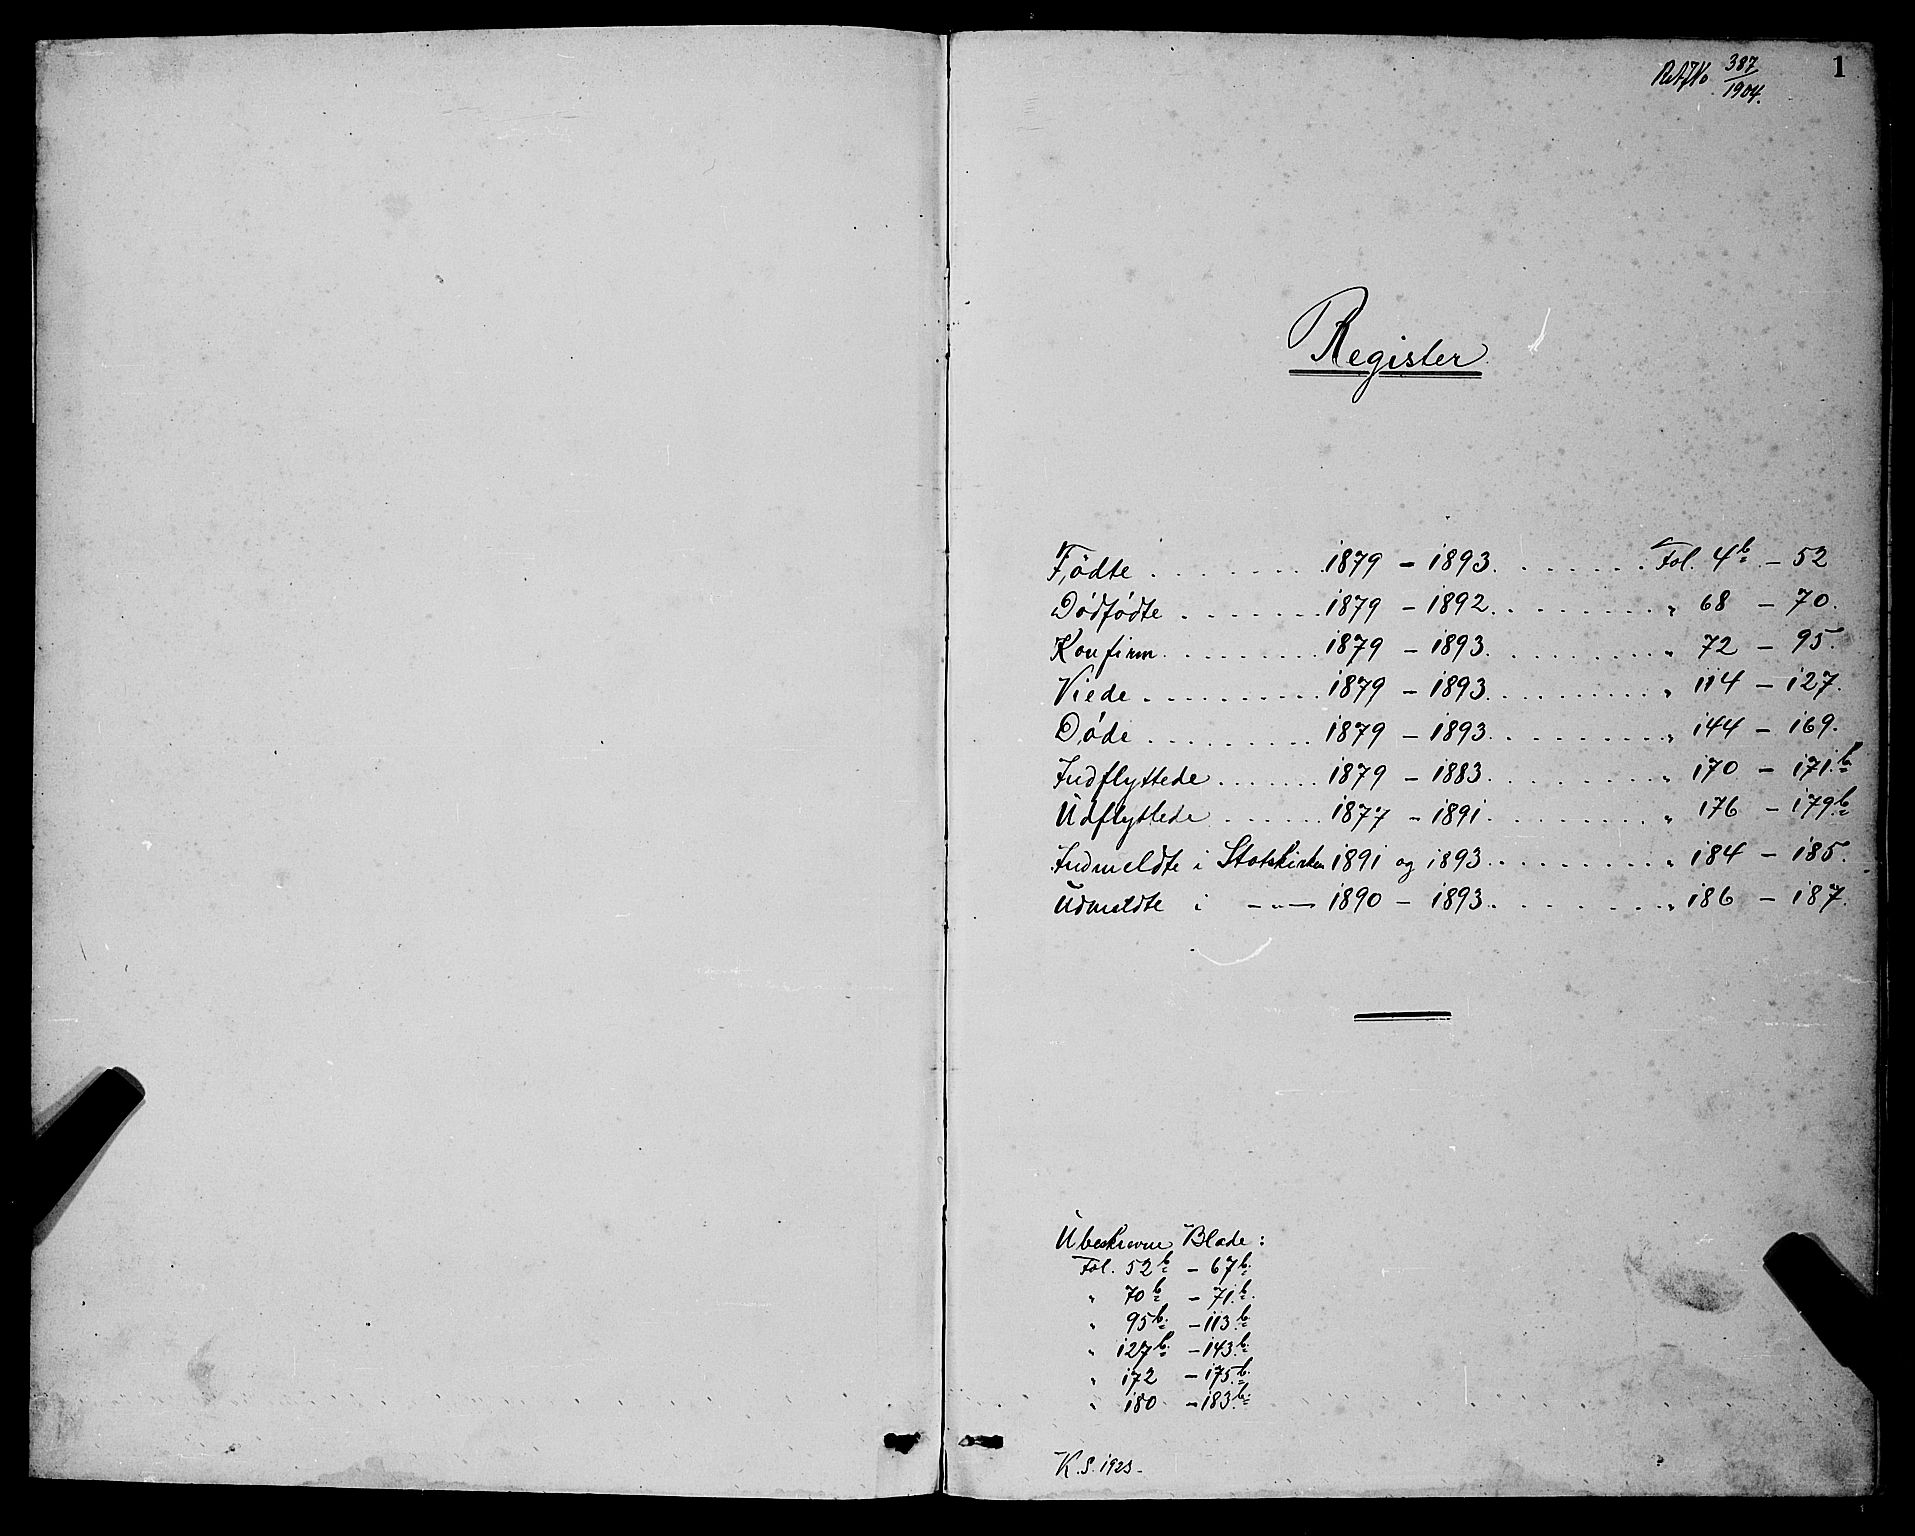 1
387
1904.
Register
Fødte . . . . . . . 1879 - 1893. . . . . . . Fol. 4b - 52
Dødfødte . . . . . . . 1879 - 1892. . . . . . . " 68 - 70.
Konfirm. . . . . . . . 1879 - 1893. . . . . . . " 72 - 95.
Viede . . . . . . . . 1879 - 1893. . . . . . . " 114 - 127.
Døde . . . . . . . . 1879 - 1893. . . . . . . " 144 - 169.
Indflyttede . . . . . . 1879 - 1883. . . . . . . " 170 - 171.b
Udflyttede . . . . . . 1877 - 1891. . . . . . . " 176 - 179b
Indmeldte i Statskirken 1891 og 1893. . . . . . . " 184 - 185.
Udmeldte i -"- 1890 - 1893. . . . . . . " 186 - 187.
Ubeskrevne Blade:
Fol. 52b - 67b.
" 70b - 71.b.
" 95b. - 113b.
" 127b. - 143.b.
" 172 - 175.b.
" 180. - 183.b.
K.S. 1923.